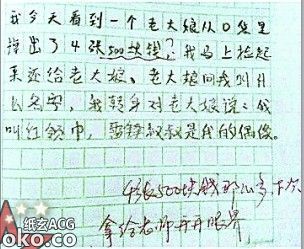 我今天看到一个老大娘从口袋里
掉出了4张500块钱？我马上捡起
来还给老大娘、老大娘问我叫什
么名字，我转身对老大娘说：我
叫红领巾，雷锋叔叔是我的偶像。
4张500块钱那么多下次
拿给老师开开眼界
纸玄ACG
oko.co